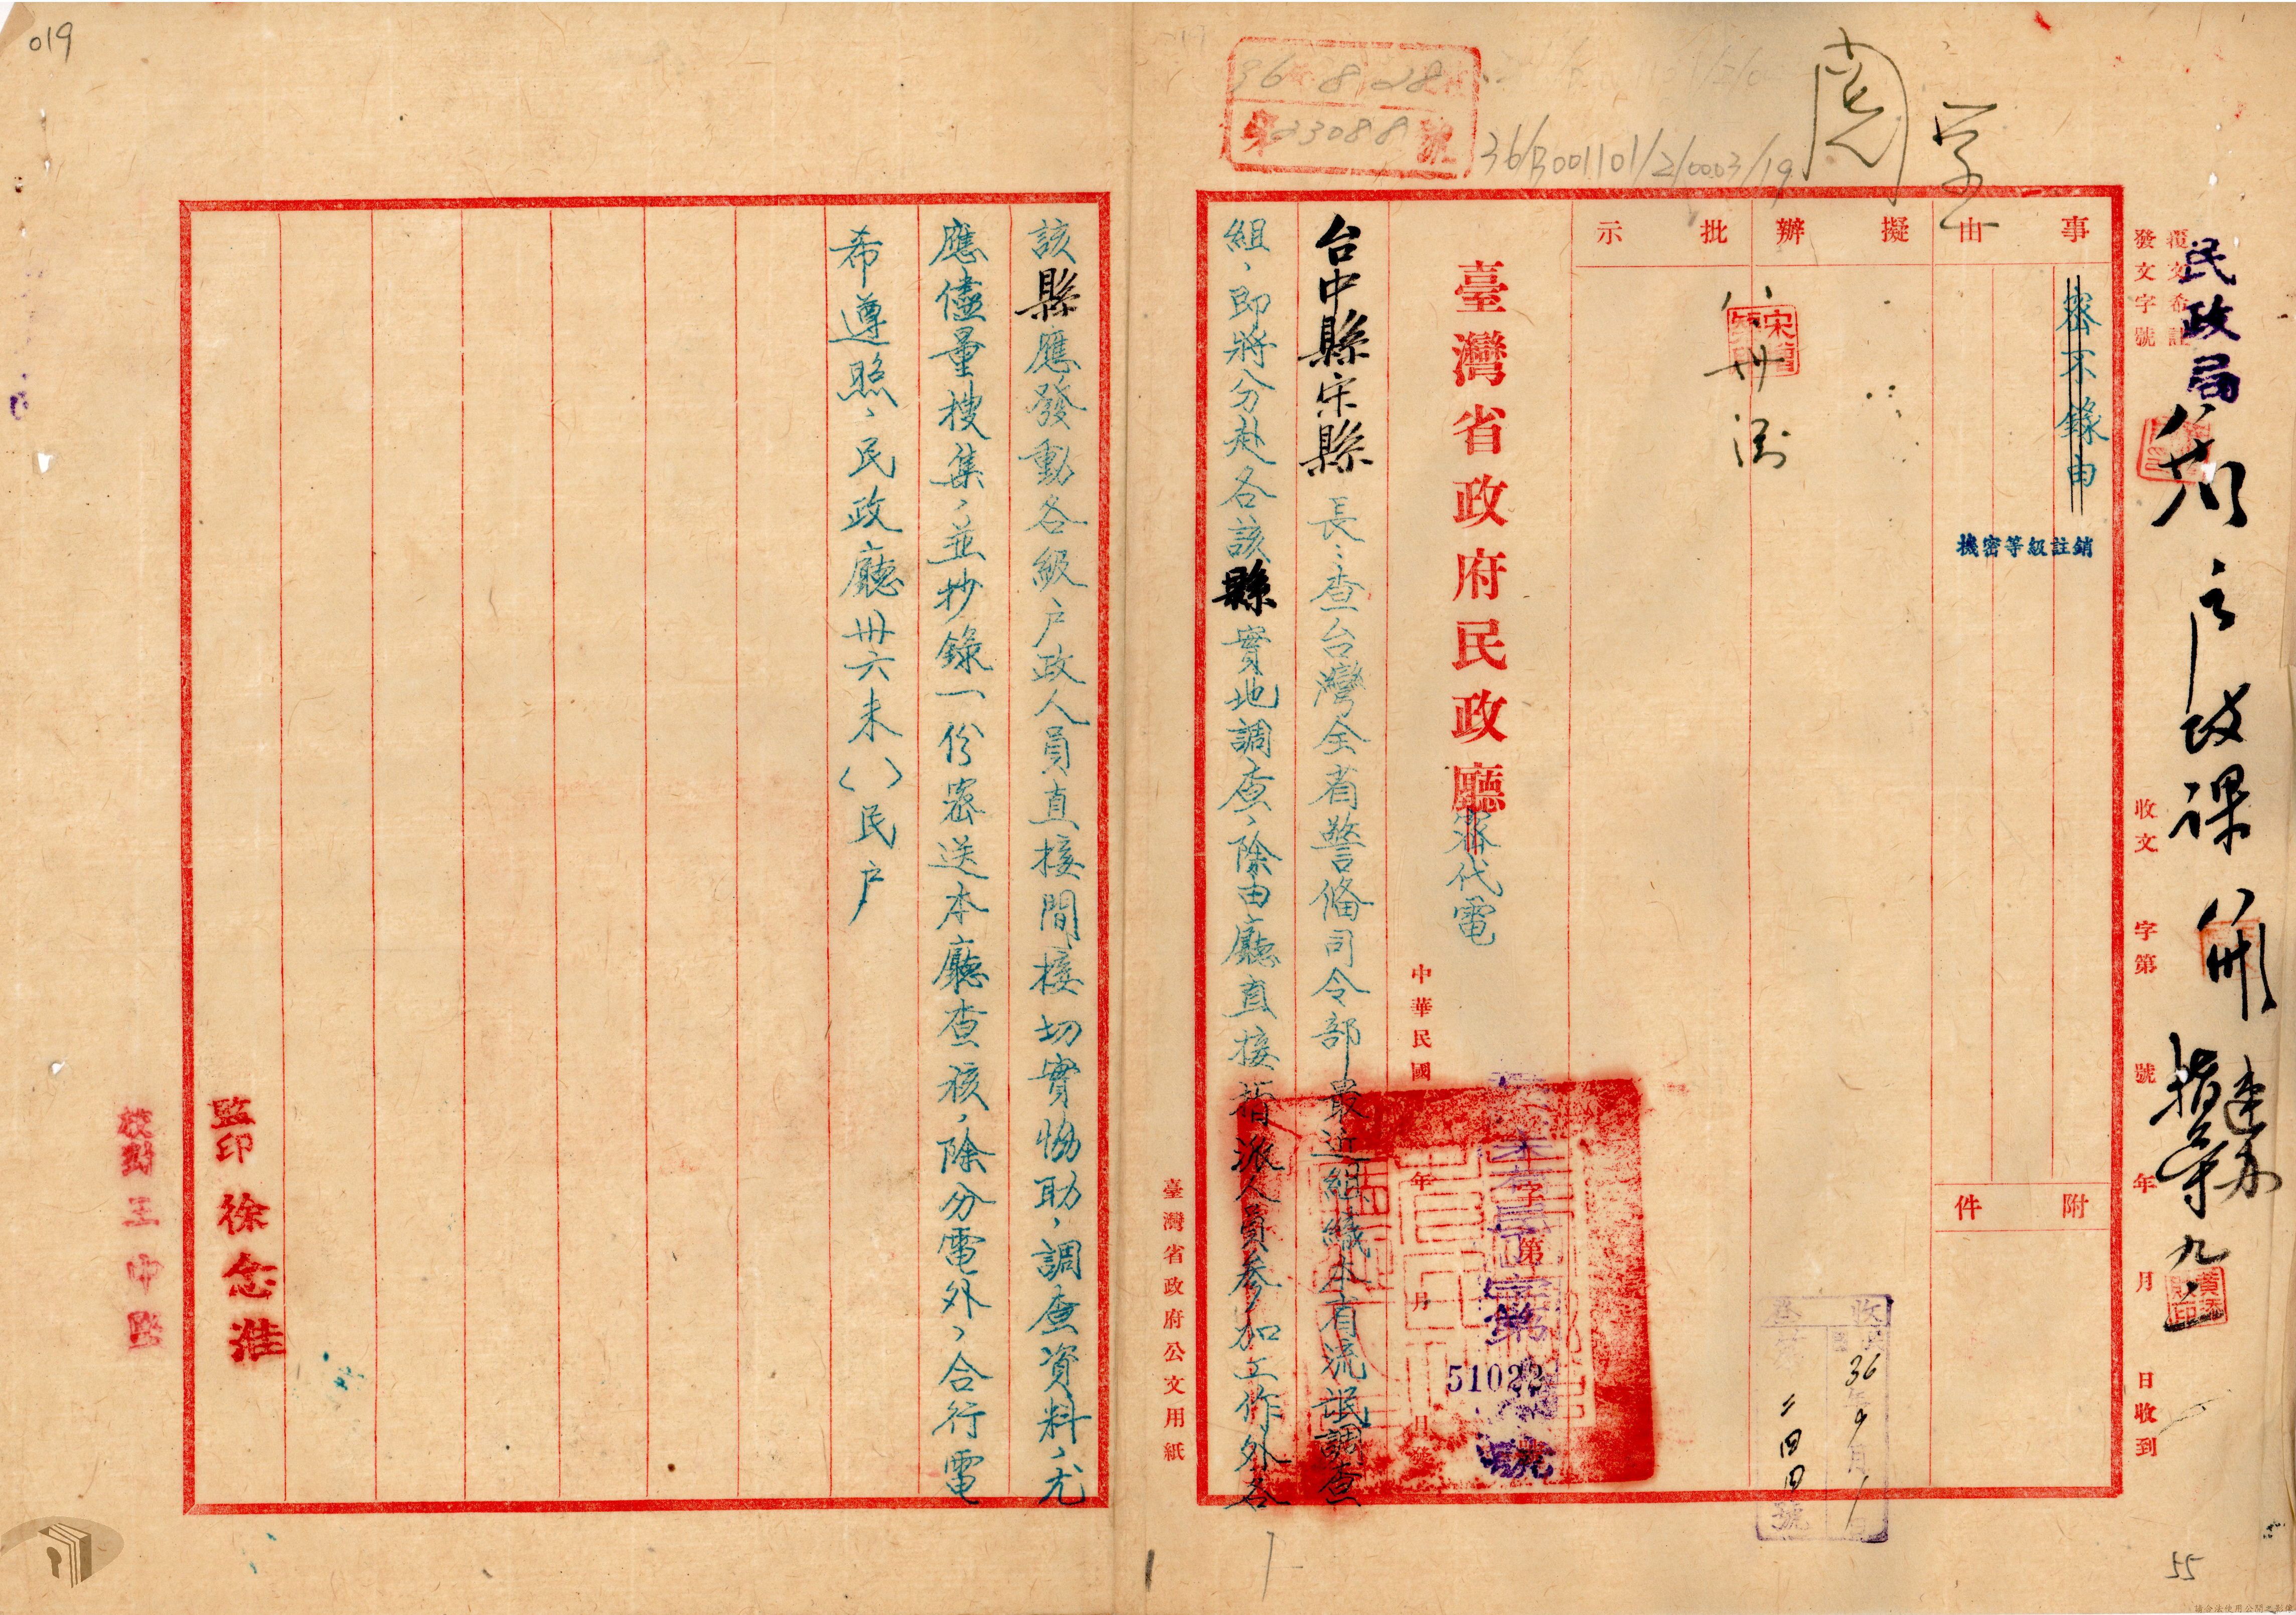 019
36 8 28
第23088號
36/B001101/2/0003/19
閱
民政局
戶政課
覆文希註
發文字號
收文 字第 號 年 月 日收到
事由
密不錄由
機密等級註銷
附件
擬辦
批示
收
36年9月1日
登
號
臺灣省政府民政廳密代電
中華民國 年 月 日發
字第
51022
號
台中縣宋縣長:查台灣全省警備司令部最近組織本省流氓調查
組、即將分赴各該縣實地調查、除由廳直接指派人員參加工作外各
臺灣省政府公文用紙
該縣應發動各級户政人員直接間接切實協助、調查資料、尤
應儘量搜集、並抄錄一份密送本廳查核、除分電外、合行電
希遵照、民政廳卅六未()民户
監印 徐念淮
校對 王中堅
55